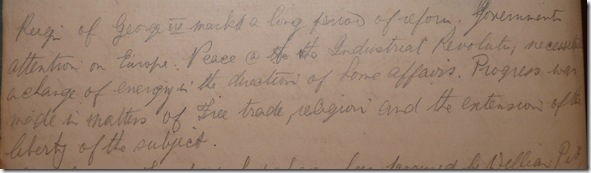 Reign of George IV marks a long period of reform. Government
attention on Europe. Peace & the Industrial Revolutn, necessitated
a change of energy in the direction of home affairs. Progress was
made in matters of Free trade, religion and the extension of the
liberty of the subject.
been favoured by William Pitt